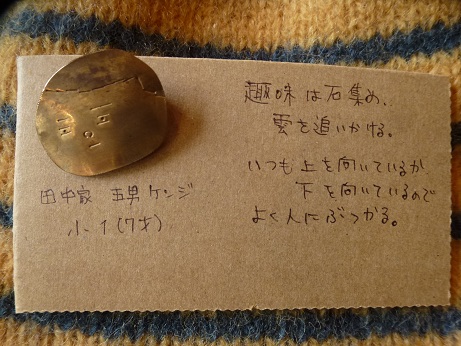 田中家 五男 ケンジ
小1(7才)
趣味は石集め、
雲を追いかける。
いつも上を向いているか
下を向いているので
よく人にぶつかる。